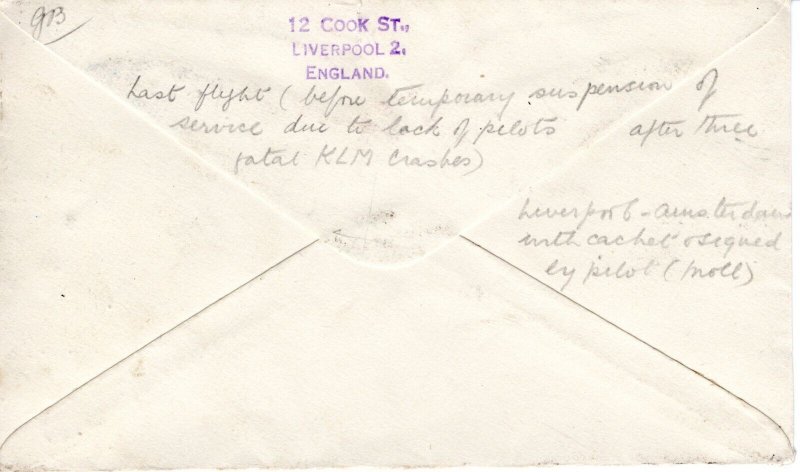 GB
12 COOK ST.,
LIVERPOOL 2,
ENGLAND.
Last flight (before temporary suspension of
service due to lack of pilots after three
fatal KLM crashes)
Liverpool - Amsterdam
with cachet & signed
by pilot (Moll)